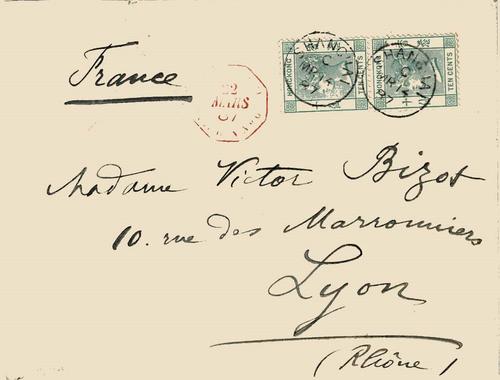 France
HONGKONG
TEN CENTS
HONGKONG
TEN CENTS
SHANGHAI
C
MR
87
SHANGHAI
C
MR
22
MARS
87
Madame Victor Bizot
10. rue des Marronniers
Lyon
(Rhône)